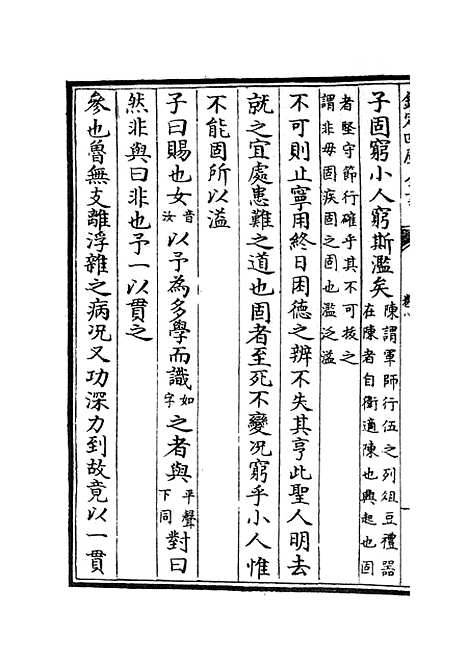 子固窮小人窮斯濫矣陳謂軍師行伍之列俎豆禮器
在陳者自衛適陳也興起也固
者堅守節行確乎其不可拔之
謂非毋固疾固之固也濫泛溢
不可則止寧用終日困德之辨不失其亨此聖人明去
就之宜處患難之道也固者至死不變况窮乎小人惟
不能固所以濫
子曰賜也女音汝以予為多學而識如字之者與平聲下同對曰
然非與曰非也予一以貫之
參也魯無支離浮雜之病况又功深力到故竟以一貫